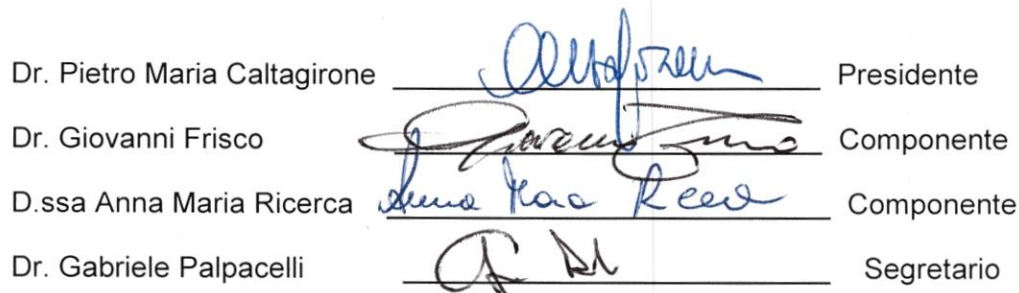 Dr. Pietro Maria Caltagirone Presidente
Dr. Giovanni Frisco Giovanni Componente
D.ssa Anna Maria Ricerca Anna Componente
Dr. Gabriele Palpacelli Segretario